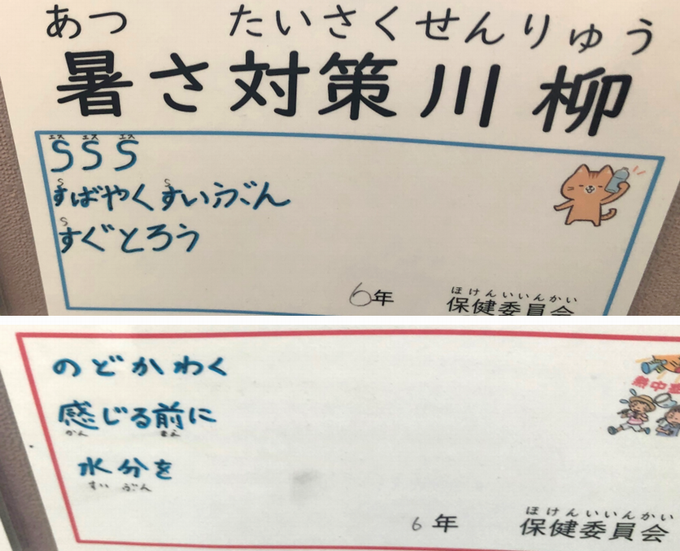 あつ たいさくせんりゅう
暑さ対策川柳
エス エス エス
S S S
S S
すばやくすいぶん
S
すぐとろう
6年
ほけんいいんかい
保健委員会
のどかわく
感じる前に
かん まえ
水分を
すい ぶん
熱中
6年
ほけんいいんかい
保健委員会